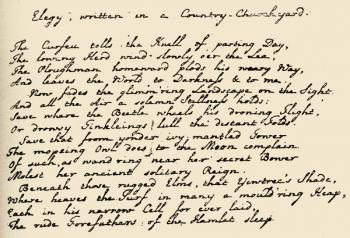 Elegy, written in a Country-Churchyard.
The Curfeu tolls the Knell of parting Day,
The lowing Herd wind slowly o'er the Lea,
The Ploughman homeward plods his weary Way,
And leaves the World to Darkness & to me.
Now fades the glimm'ring Landscape on the Sight,
And all the Air a solemn Stillness holds;
Save where the Beetle wheels his droning Flight,
Or drowsy Tinklings lull the distant Folds.
Save that from yonder ivy-mantled Tower
The mopeing Owl does to the Moon complain
Of such, as wand'ring near her secret Bower
Molest her ancient solitary Reign.
Beneath those rugged Elms, that Yewtree's Shade,
Where heaves the Turf in many a mould'ring Heap,
Each in his narrow Cell for ever laid,
The rude Forefathers of the Hamlet sleep